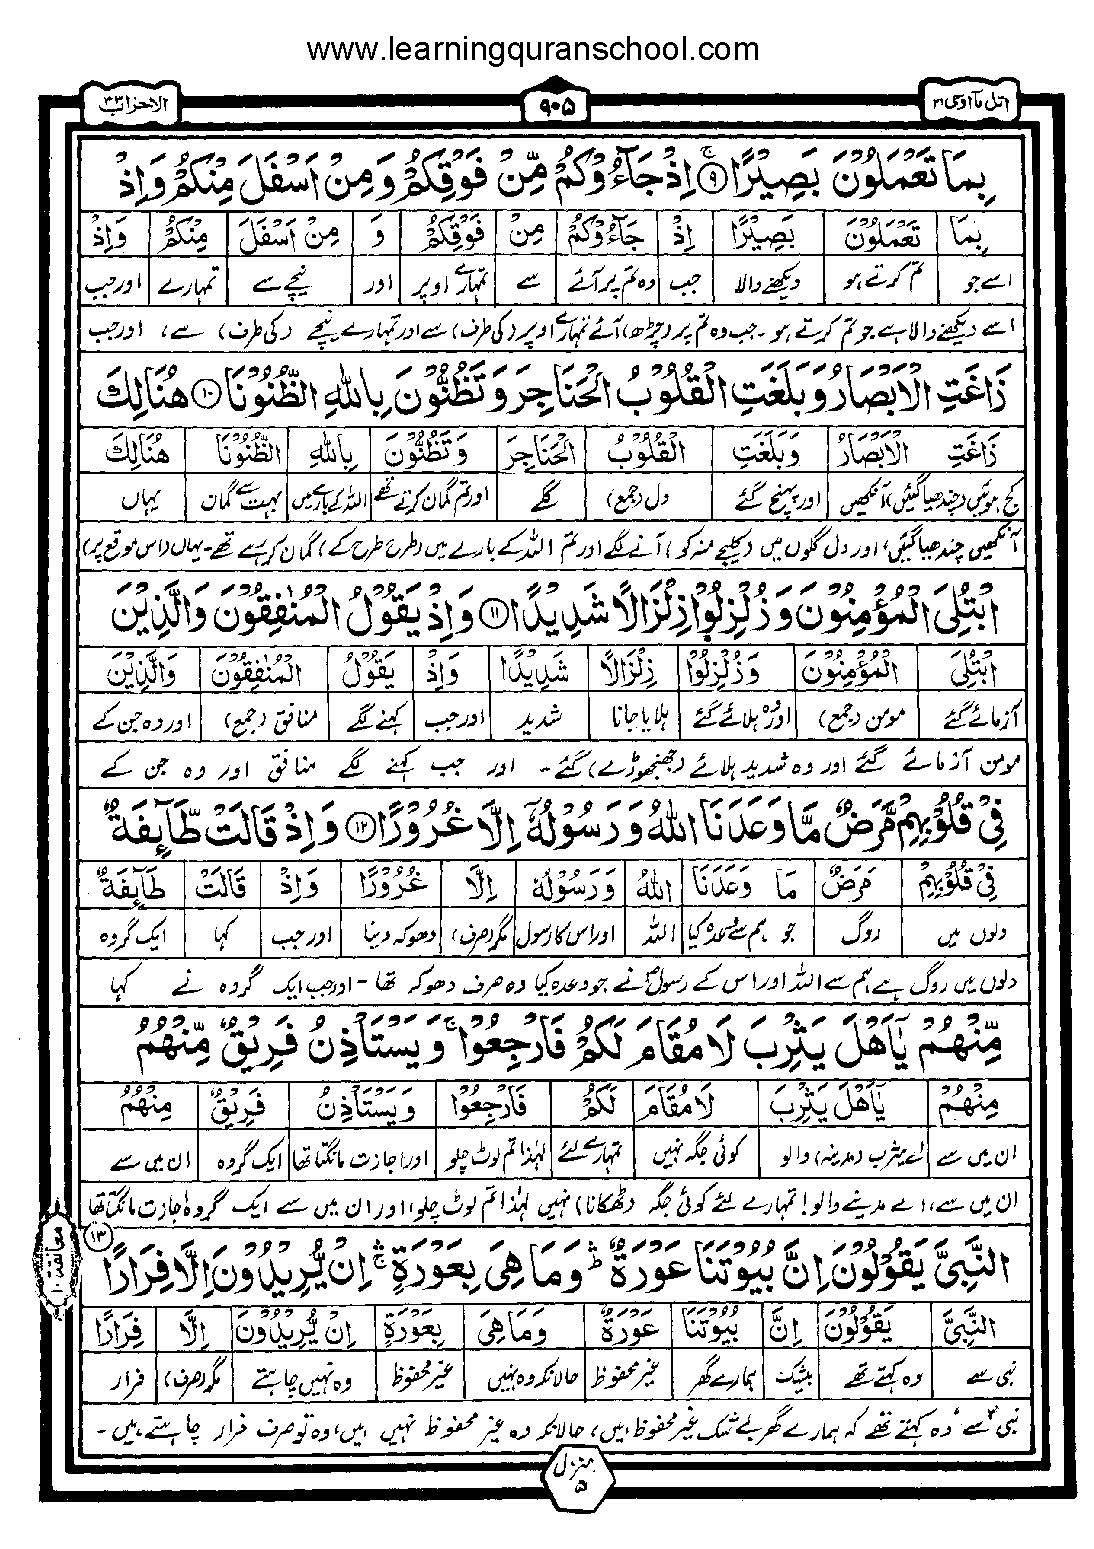 www.learningquranschool.com
اتل مآ اوحی ۲۱
۹۰۵
الاحزاب ۳۳
بِمَا تَعْمَلُوْنَ بَصِيْرًا ۹ اِذْ جَآءُوْكُمْ مِّنْ فَوْقِكُمْ وَ مِنْ اَسْفَلَ مِنْكُمْ وَ اِذْ
بِمَا تَعْمَلُوْنَ بَصِيْرًا اِذْ جَآءُوْكُمْ مِنْ فَوْقِكُمْ وَ مِنْ اَسْفَلَ مِنْكُمْ وَاِذْ
اسے جو تم کرتے ہو دیکھنے والا جب وہ تم پر آئے سے تمہارے اوپر اور نیچے سے تمہارے اور جب
اسے دیکھنے والا ہے جو تم کرتے ہو۔ جب وہ تم پر (چڑھ) آئے تمہارے اوپر (کی طرف) سے اور تمہارے نیچے (کی طرف) سے، اور جب
زَاغَتِ الْاَبْصَارُ وَ بَلَغَتِ الْقُلُوْبُ الْحَنَاجِرَ وَ تَظُنُّوْنَ بِاللّٰهِ الظُّنُوْنَا ۱۰ هُنَالِكَ
زَاغَتِ الْاَبْصَارُ وَبَلَغَتِ الْقُلُوْبُ الْحَنَاجِرَ وَتَظُنُّوْنَ بِاللّٰهِ الظُّنُوْنَا هُنَالِكَ
کج ہوئیں (چندھیا گئیں) آنکھیں اور پہنچ گئے دل (جمع) گلے اور تم گمان کرتے تھے اللہ کے بارے میں بہت سے گمان یہاں
آنکھیں چندھیا گئیں، اور دل گلوں میں (کلیجے منہ کو) آنے لگے اور تم اللہ کے بارے میں (طرح طرح کے) گمان کر رہے تھے۔ یہاں (اس موقع پر)
ابْتُلِيَ الْمُؤْمِنُوْنَ وَ زُلْزِلُوْا زِلْزَالًا شَدِيْدًا ۱۱ وَ اِذْ يَقُوْلُ الْمُنٰفِقُوْنَ وَالَّذِيْنَ
ابْتُلِيَ الْمُؤْمِنُوْنَ وَزُلْزِلُوْا زِلْزَالًا شَدِيْدًا وَاِذْ يَقُوْلُ الْمُنٰفِقُوْنَ وَالَّذِيْنَ
آزمائے گئے مومن (جمع) اور وہ ہلائے گئے ہلایا جانا شدید اور جب کہنے لگے منافق (جمع) اور وہ جن کے
مومن آزمائے گئے اور وہ شدید ہلائے (جھنجھوڑے) گئے۔ اور جب کہنے لگے منافق اور وہ جن کے
فِيْ قُلُوْبِهِمْ مَّرَضٌ مَّا وَعَدَنَا اللّٰهُ وَ رَسُوْلُهٗۤ اِلَّا غُرُوْرًا ۱۲ وَ اِذْ قَالَتْ طَّآئِفَةٌ
فِيْ قُلُوْبِهِمْ مَرَضٌ مَا وَعَدَنَا اللّٰهُ وَرَسُوْلُهٗ اِلَّا غُرُوْرًا وَاِذْ قَالَتْ طَآئِفَةٌ
دلوں میں روگ جو ہم سے وعدہ کیا اللہ اور اس کا رسول مگر (صرف) دھوکہ دینا اور جب کہا ایک گروہ
دلوں میں روگ ہے ہم سے اللہ اور اس کے رسول نے جو وعدہ کیا وہ صرف دھوکہ تھا۔ اور جب ایک گروہ نے کہا
مِّنْهُمْ يٰۤاَهْلَ يَثْرِبَ لَا مُقَامَ لَكُمْ فَارْجِعُوْا ۚ وَ يَسْتَاْذِنُ فَرِيْقٌ مِّنْهُمُ
مِنْهُمْ يٰۤاَهْلَ يَثْرِبَ لَا مُقَامَ لَكُمْ فَارْجِعُوْا وَيَسْتَاْذِنُ فَرِيْقٌ مِنْهُمُ
ان میں سے اے یثرب (مدینہ) والو کوئی جگہ نہیں تمہارے لئے لہٰذا تم لوٹ چلو اور اجازت مانگتا تھا ایک گروہ ان میں سے
ان میں سے، اے مدینے والو! تمہارے لئے کوئی جگہ (ٹھکانا) نہیں لہٰذا تم لوٹ چلو، اور ان میں سے ایک گروہ اجازت مانگتا تھا
النَّبِيَّ يَقُوْلُوْنَ اِنَّ بُيُوْتَنَا عَوْرَةٌ ؕ وَمَا هِيَ بِعَوْرَةٍ ۚ اِنْ يُّرِيْدُوْنَ اِلَّا فِرَارًا ۱۳
معانقة ۱۰
النَّبِيَّ يَقُوْلُوْنَ اِنَّ بُيُوْتَنَا عَوْرَةٌ وَمَا هِيَ بِعَوْرَةٍ اِنْ يُّرِيْدُوْنَ اِلَّا فِرَارًا
نبی سے وہ کہتے تھے بیشک ہمارے گھر غیر محفوظ حالانکہ وہ نہیں غیر محفوظ وہ نہیں چاہتے مگر (صرف) فرار
نبی سے، وہ کہتے تھے کہ ہمارے گھر بے شک غیر محفوظ ہیں، حالانکہ وہ غیر محفوظ نہیں ہیں، وہ تو صرف فرار چاہتے ہیں۔
منزل ۵